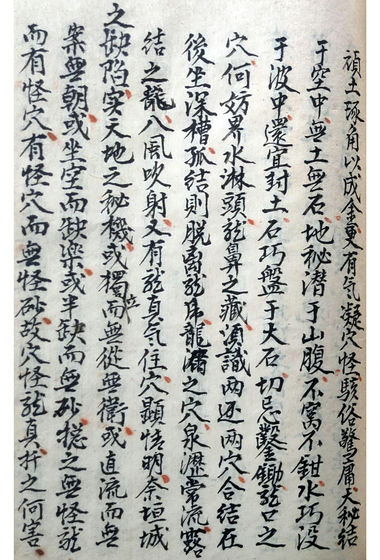 頑土琢角以成金更有气凝穴怪駭俗驚庸天秘結
于空中無土無石地秘潜于山腹不窩不鉗水巧没
于波中還宜封土石巧盤于大石切忌鑿鋤龍口之
穴何妨界水淋頭龍鼻之藏須識两边两穴合結在
後坐深槽孤結則脱离龍体龍漏之穴泉瀝常流露
結之龍八風吹射又有龍真气住穴顯怪明奈垣城
之缺陷实天地之秘機或獨而無從無衛或直流而無
案無朝或坐空而缺樂或半缺而無砂摠之無怪龍
而有怪穴有怪穴而無怪砂故穴怪龍真扦之何害